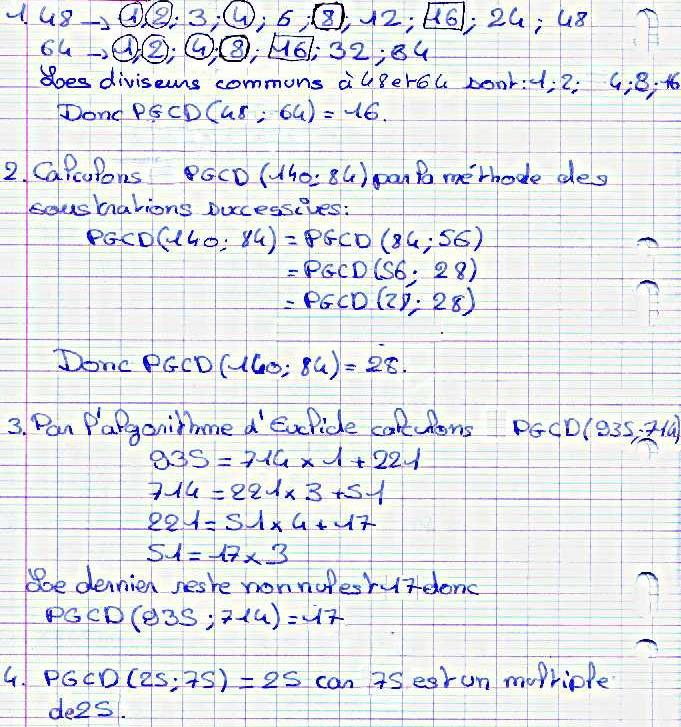 1. 48 → 1; 2; 3; 4; 6; 8; 12; 16; 24; 48
64 → 1; 2; 4; 8; 16; 32; 64
Les diviseurs communs à 48 et 64 sont: 1; 2; 4; 8; 16
Donc PGCD(48; 64) = 16.
2. Calculons PGCD(140; 84) par la méthode des
soustrations successives:
PGCD(140; 84) = PGCD(84; 56)
= PGCD(56; 28)
= PGCD(28; 28)
Donc PGCD(140; 84) = 28.
3. Par l'algorithme d'Euclide calculons PGCD(935; 714)
935 = 714 × 1 + 221
714 = 221 × 3 + 51
221 = 51 × 4 + 17
51 = 17 × 3
Le dernier reste non nul est 17 donc
PGCD(935; 714) = 17
4. PGCD(25; 75) = 25 car 75 est un multiple
de 25.